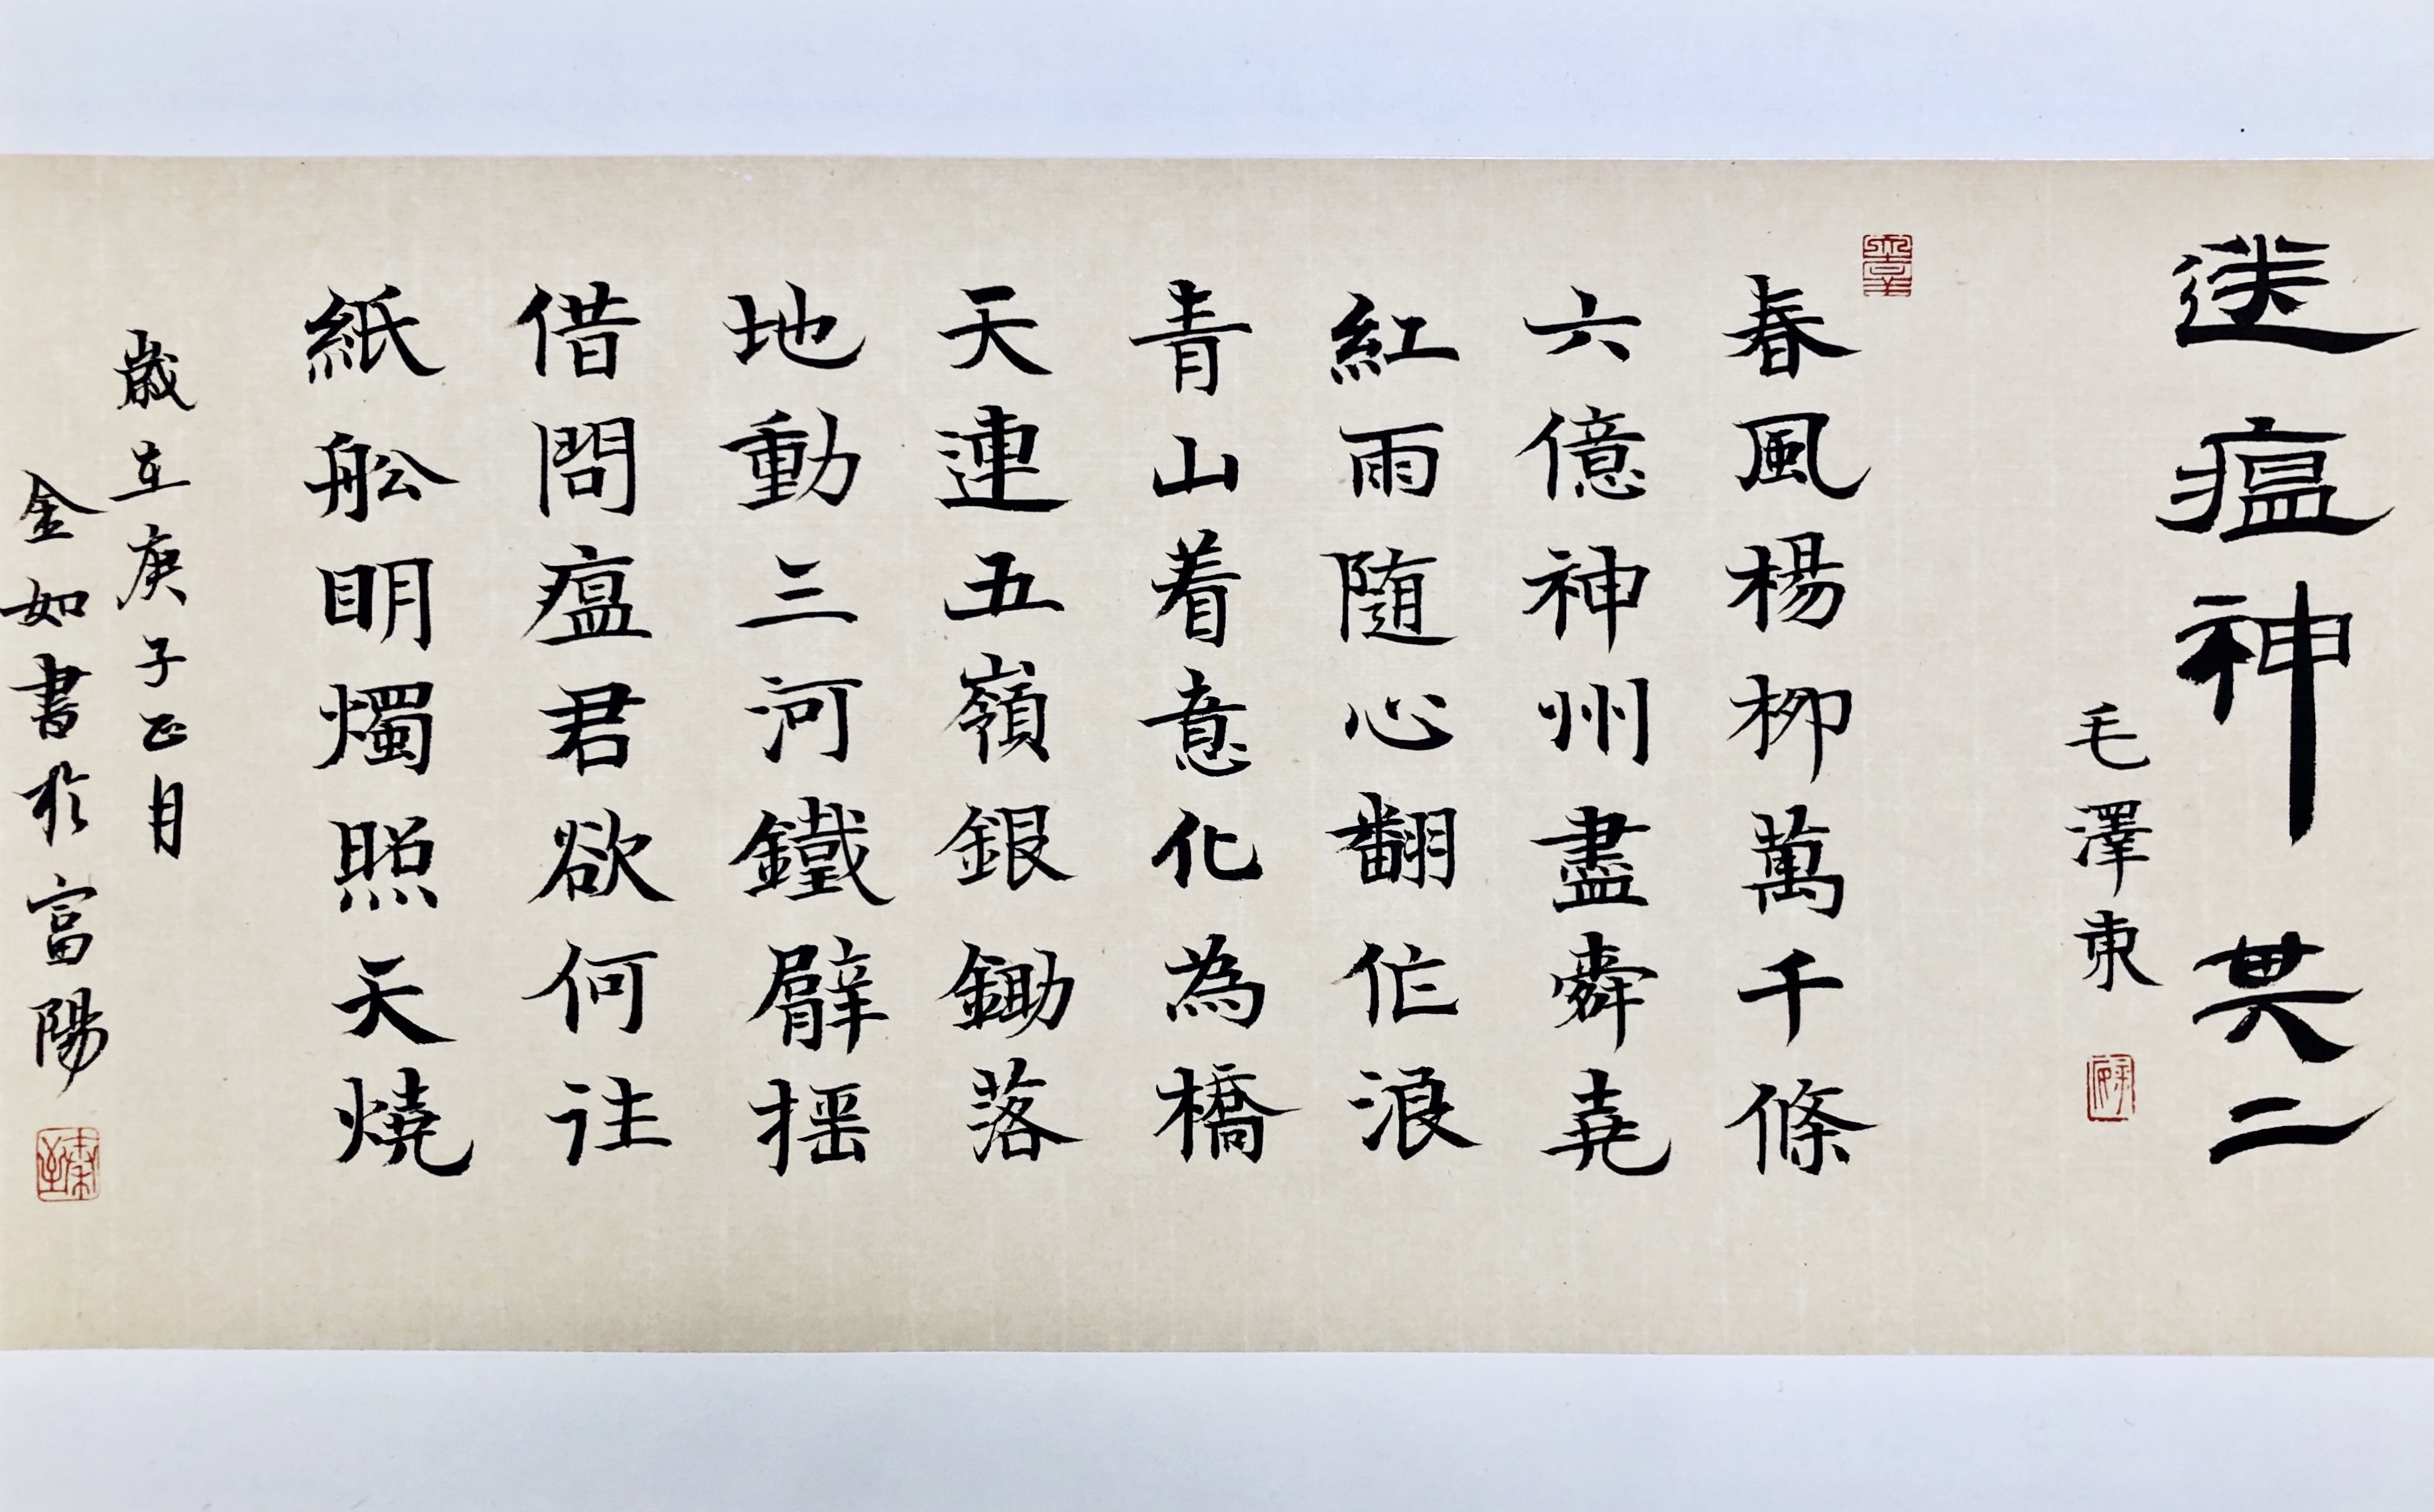 送瘟神 其二
毛澤東
春風楊柳萬千條
六億神州盡舜堯
紅雨隨心翻作浪
青山着意化為橋
天連五嶺銀鋤落
地動三河鐵臂搖
借問瘟君欲何往
紙船明燭照天燒
歲在庚子正月
金如書於富陽